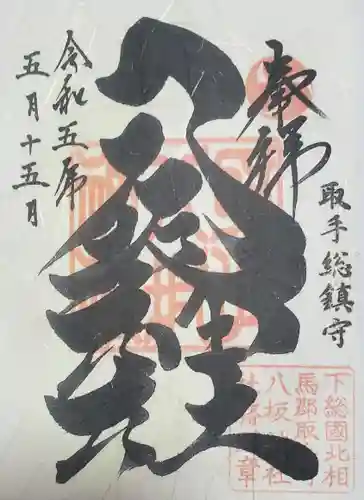 奉拝
取手総鎮守
八坂神社
令和五年
五月十五日
下総國北相
馬郡取
八坂神社